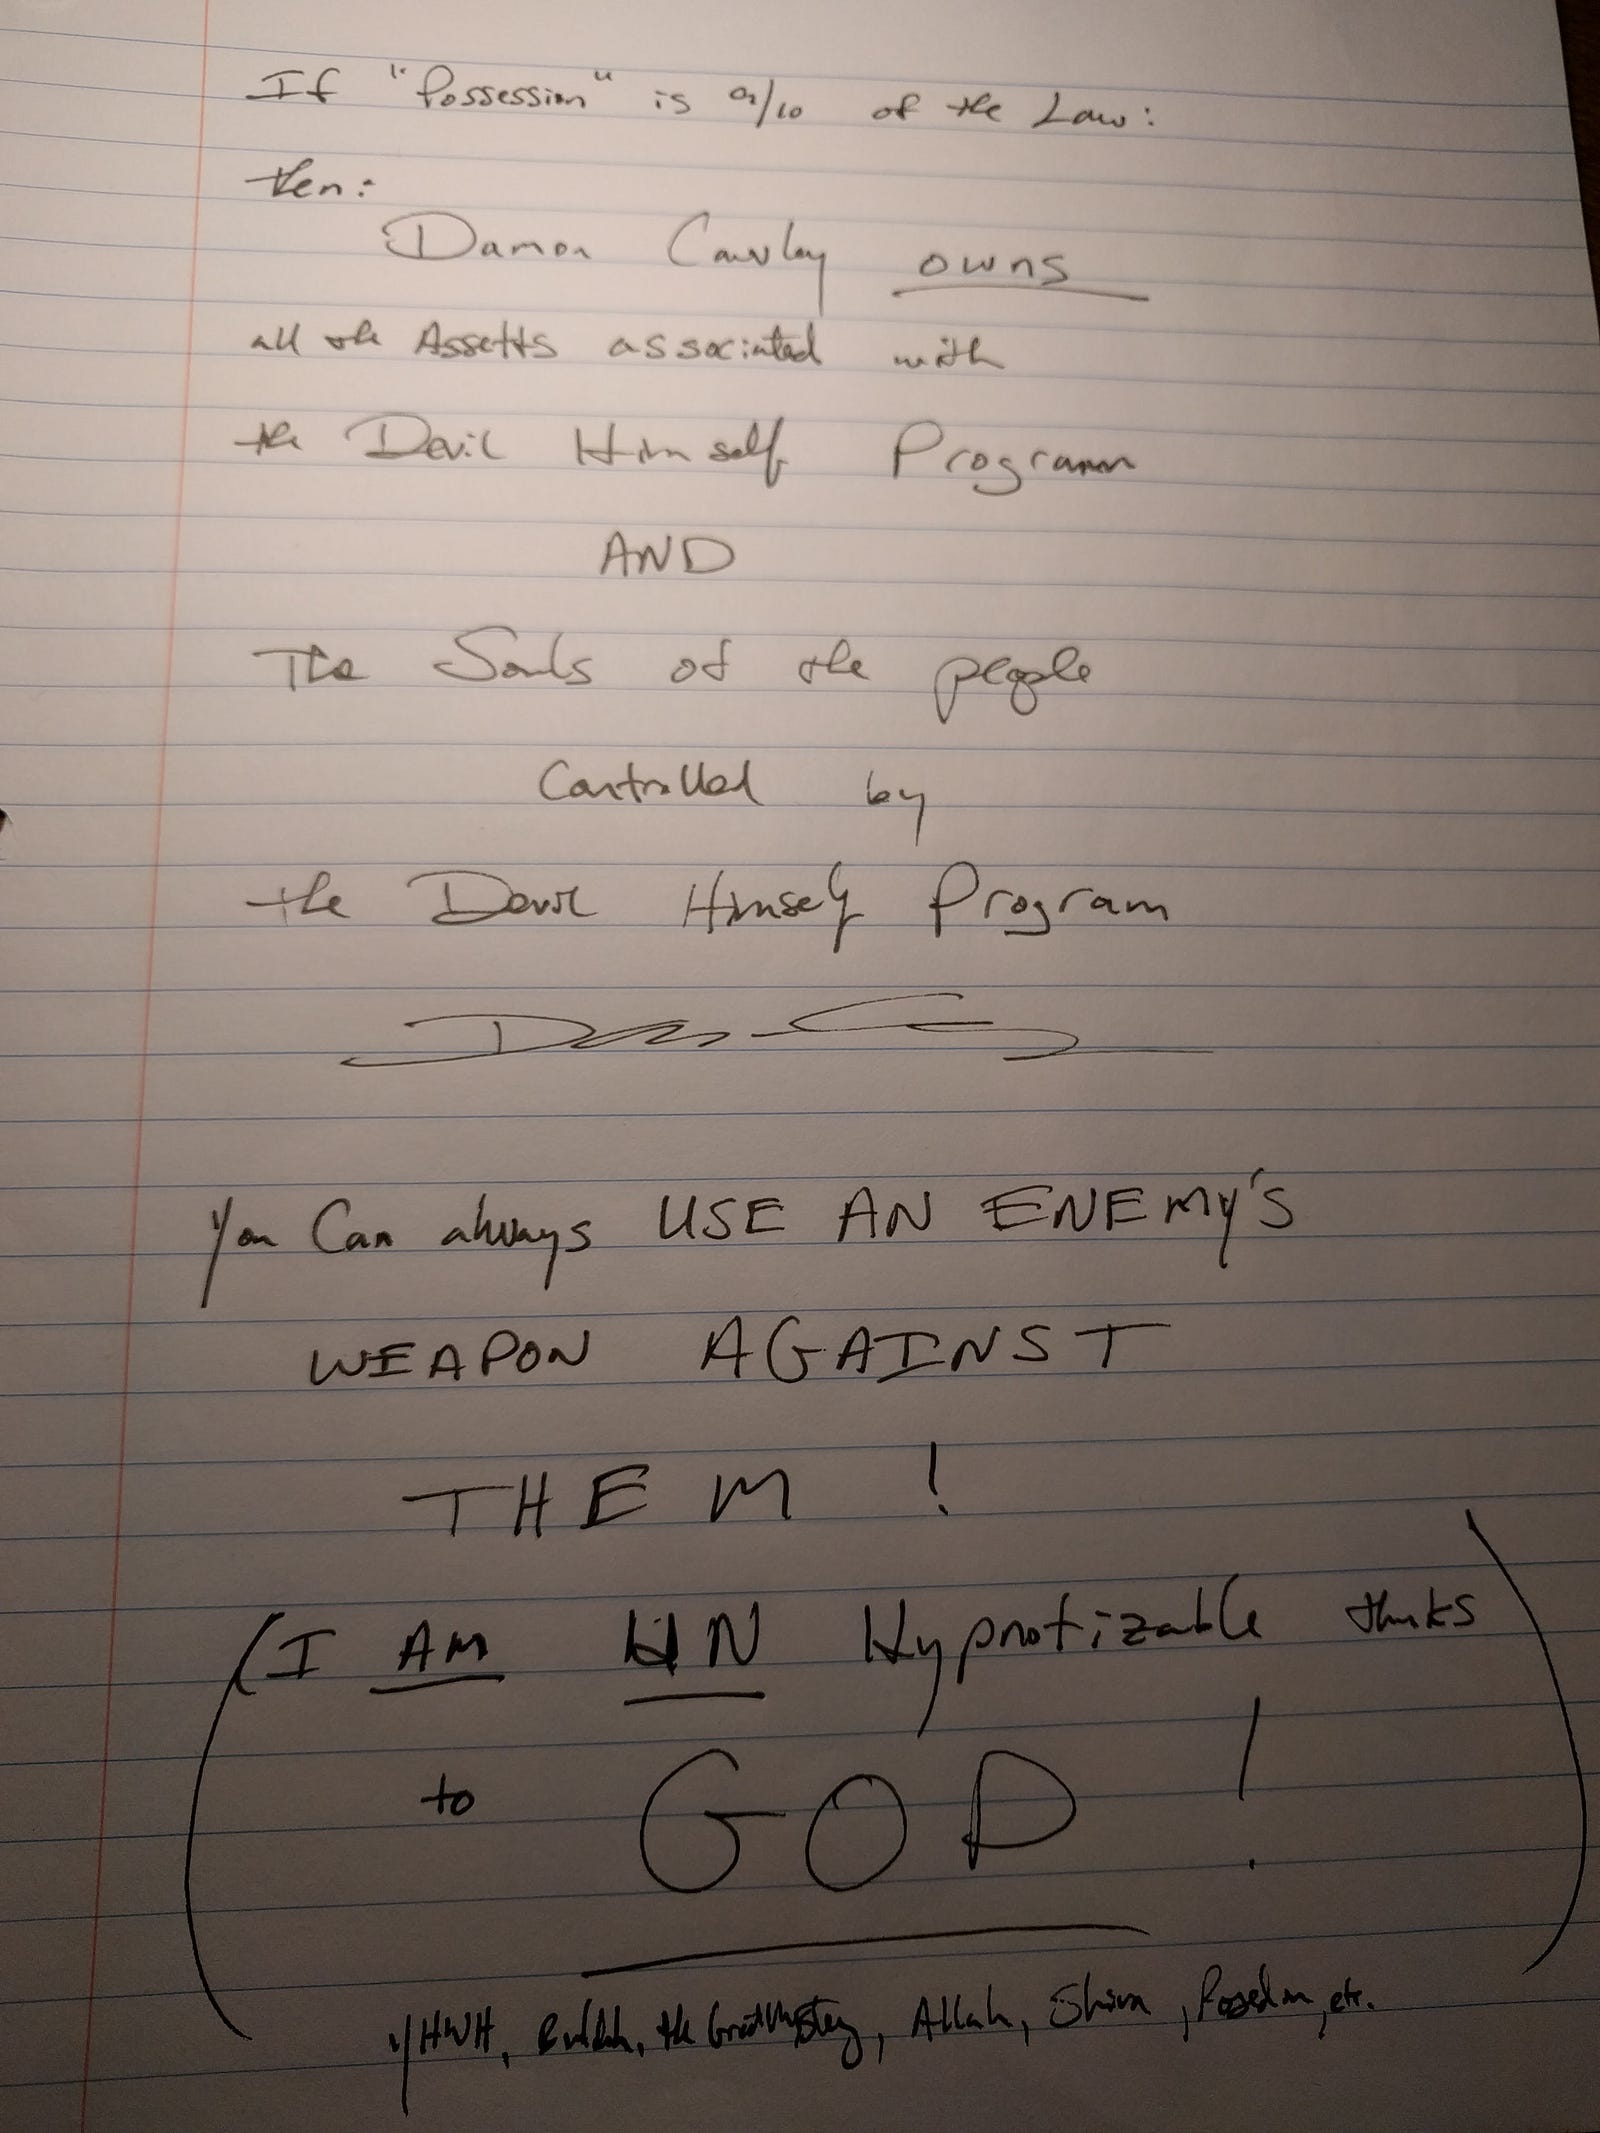 If "Possession" is 9/10 of the Law:
then:
Damon Cawley owns
all the Assetts associated with
the Devil Himself Program
AND
The Souls of the people
Controlled by
the Devil Himself Program
You Can always USE AN ENEMY'S
WEAPON AGAINST
THEM !
(I AM UN Hypnotizable thnks
to GOD ! )
YHWH, Buddah, the Great Mystery, Allah, Shiva, Poseidon, etc.